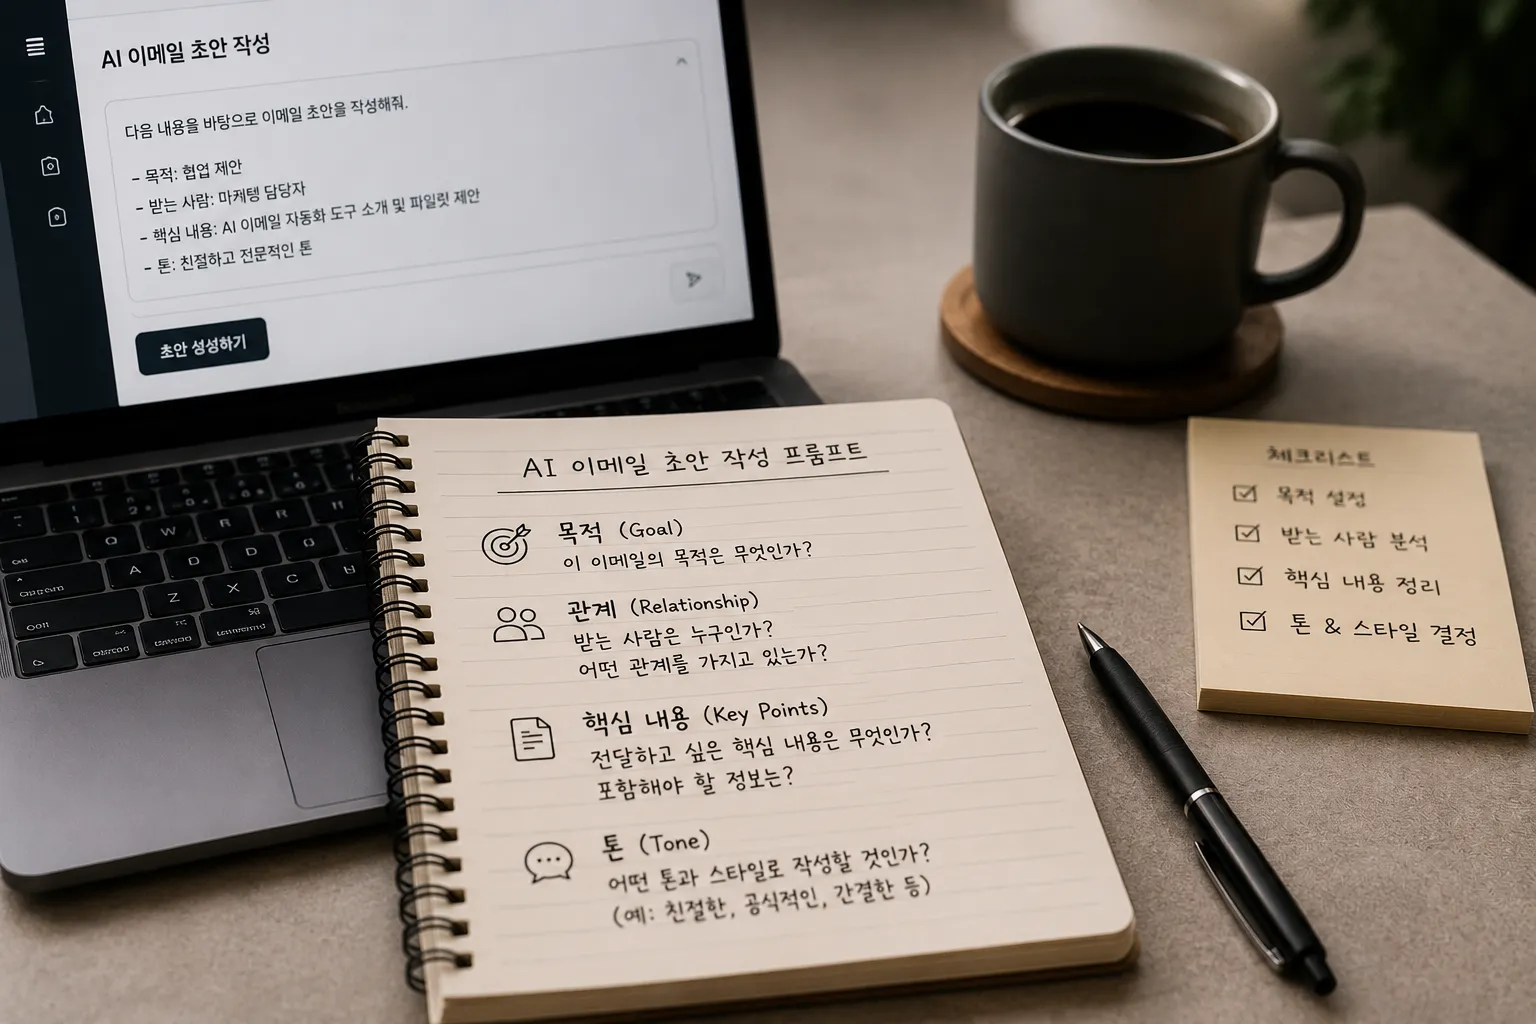 AI 이메일 초안 작성
다음 내용을 바탕으로 이메일 초안을 작성해줘.
- 목적: 협업 제안
- 받는 사람: 마케팅 담당자
- 핵심 내용: AI 이메일 자동화 도구 소개 및 파일럿 제안
- 톤: 친절하고 전문적인 톤
초안 성성하기
AI 이메일 초안 작성 프롬프트
목적 (Goal)
이 이메일의 목적은 무엇인가?
관계 (Relationship)
받는 사람은 누구인가?
어떤 관계를 가지고 있는가?
핵심 내용 (Key Points)
전달하고 싶은 핵심 내용은 무엇인가?
포함해야 할 정보는?
톤 (Tone)
어떤 톤과 스타일로 작성할 것인가?
(예: 친절한, 공식적인, 간결한 등)
체크리스트
목적 설정
받는 사람 분석
핵심 내용 정리
톤 & 스타일 결정